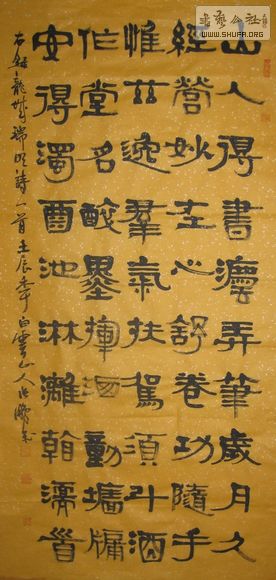 書藝公社
WWW.SHUFA.ORG
山人得書灋弄筆歲月久
經營妙在心舒卷功隨手
惟茲逸羣氣扶駕須斗酒
作堂名酣墨揮洒動墉牖
安得濁酉池淋灕翰濡首
瑞明詩一首壬辰年白雲山人